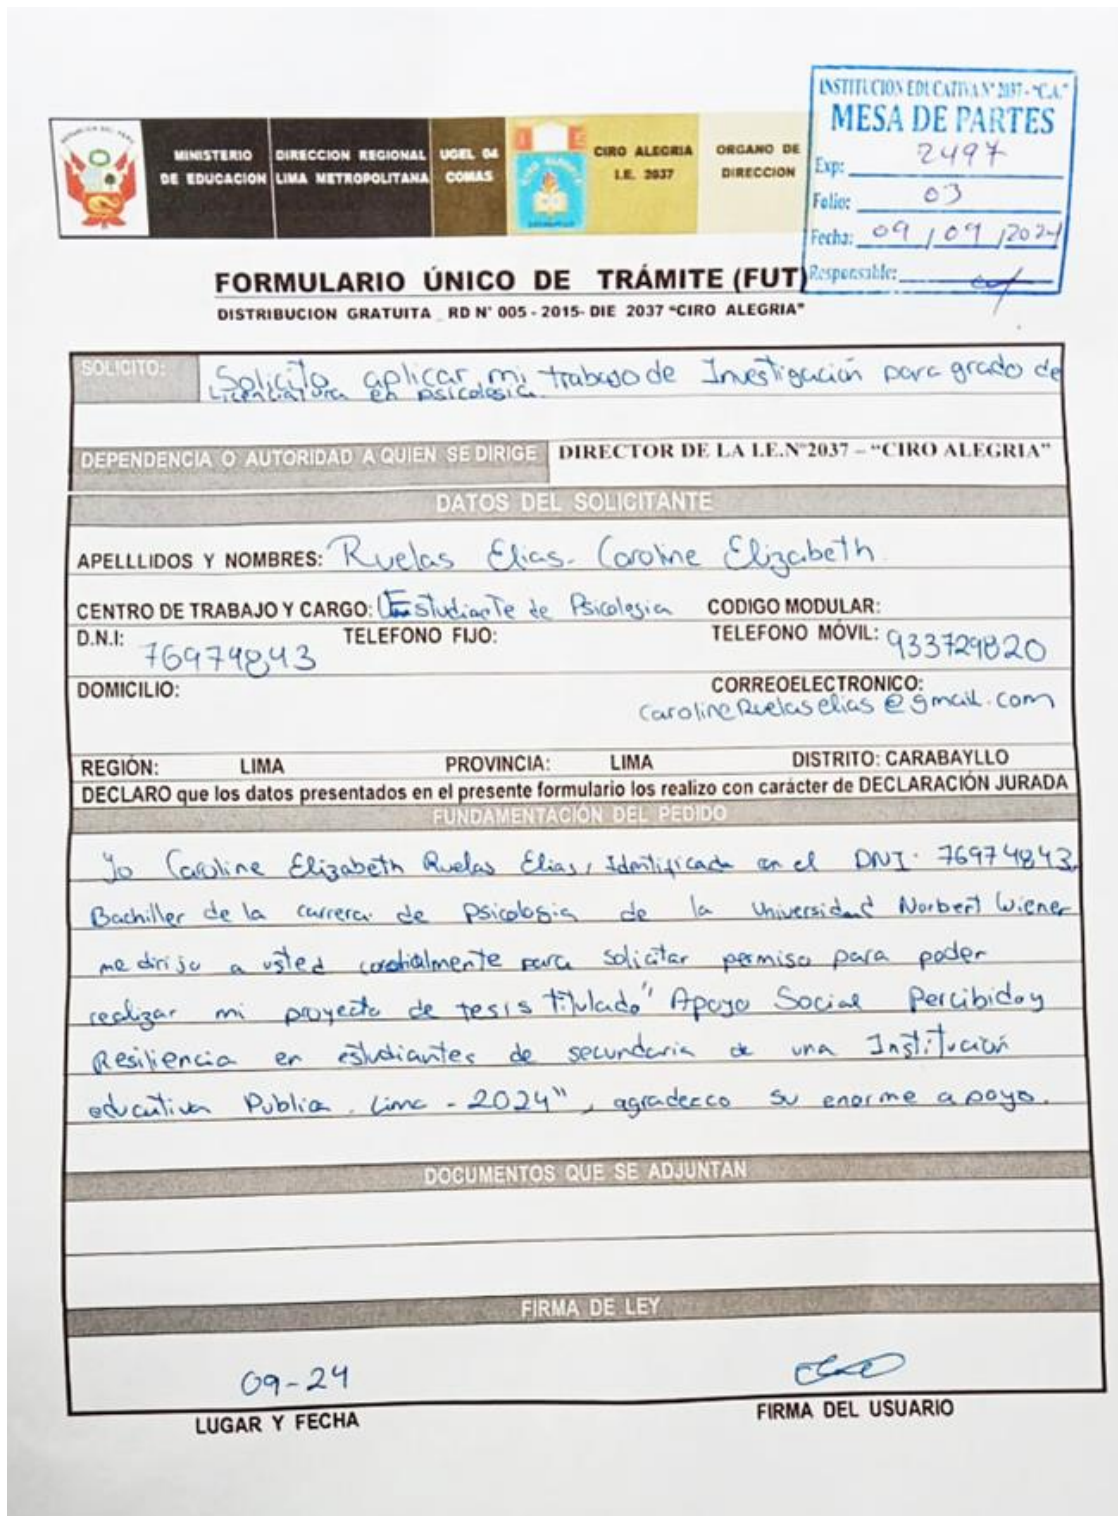 INSTITUCION EDUCATIVA N° 2037 - "C.A."
MESA DE PARTES
Exp: 2497
Folio: 03
Fecha: 09 / 09 / 2024
Responsable:
REPUBLICA DEL PERU
MINISTERIO DE EDUCACION
DIRECCION REGIONAL LIMA METROPOLITANA
UGEL 04 COMAS
I E
CIRO ALEGRIA
CIRO ALEGRIA I.E. 2037
ORGANO DE DIRECCION
FORMULARIO ÚNICO DE TRÁMITE (FUT)
DISTRIBUCION GRATUITA _ RD N° 005 - 2015- DIE 2037 "CIRO ALEGRIA"
SOLICITO: Solicito aplicar mi trabajo de Investigación para grado de
Licenciatura en psicologia.
DEPENDENCIA O AUTORIDAD A QUIEN SE DIRIGE DIRECTOR DE LA I.E.N°2037 – "CIRO ALEGRIA"
DATOS DEL SOLICITANTE
APELLLIDOS Y NOMBRES: Ruelas Elias. Caroline Elizabeth
CENTRO DE TRABAJO Y CARGO: Estudiante de Psicologia CODIGO MODULAR:
D.N.I: 76974843 TELEFONO FIJO: TELEFONO MÓVIL: 933729820
DOMICILIO: CORREOELECTRONICO:
CarolineRuelaselias@gmail.com
REGIÓN: LIMA PROVINCIA: LIMA DISTRITO: CARABAYLLO
DECLARO que los datos presentados en el presente formulario los realizo con carácter de DECLARACIÓN JURADA
FUNDAMENTACIÓN DEL PEDIDO
Yo Caroline Elizabeth Ruelas Elias, Identificada en el DNI: 76974843
Bachiller de la carrera de psicologia de la Universidad Norbert Wiener
me dirijo a usted cordialmente para solicitar permiso para poder
realizar mi proyecto de tesis titulado "Apoyo Social Percibido y
Resiliencia en estudiantes de secundaria de una Institución
educativa Publica. Lima - 2024", agradezco su enorme apoyo.
DOCUMENTOS QUE SE ADJUNTAN
FIRMA DE LEY
09-24
LUGAR Y FECHA FIRMA DEL USUARIO